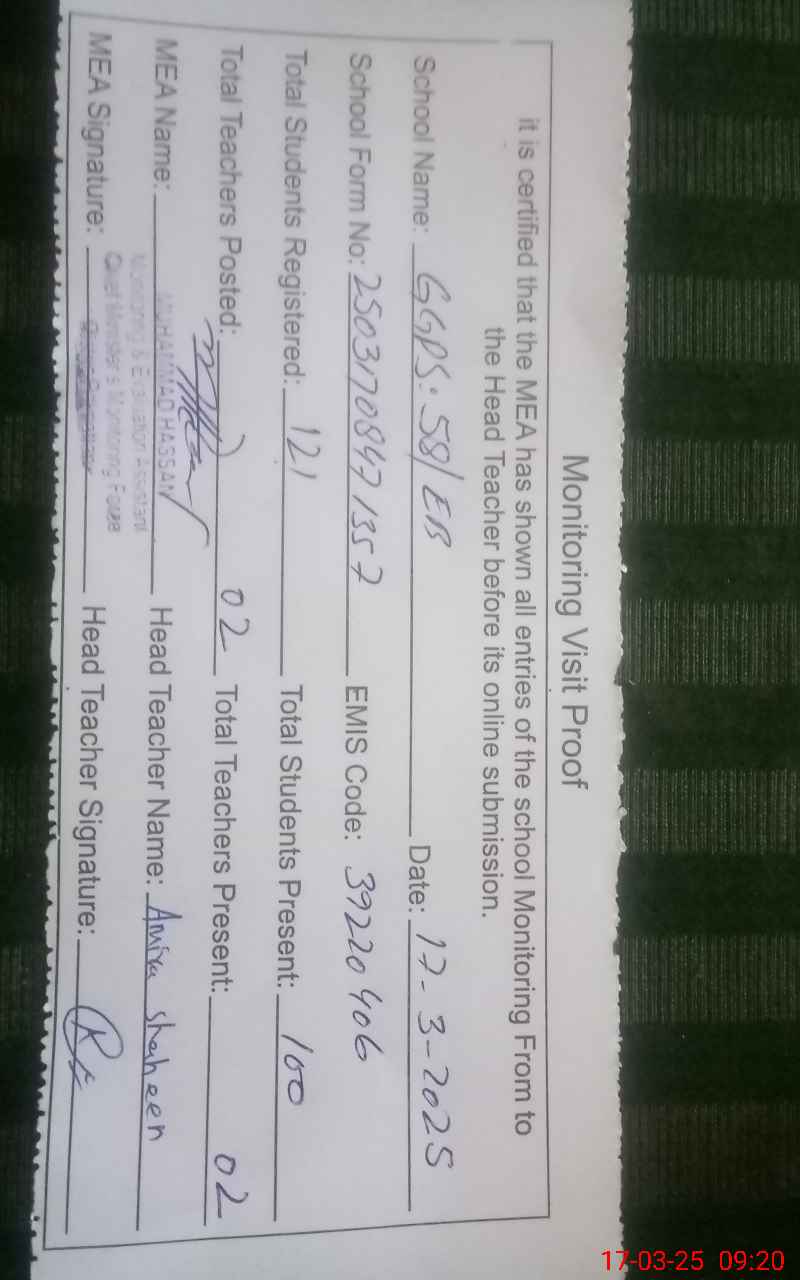 Monitoring Visit Proof
it is certified that the MEA has shown all entries of the school Monitoring From to
the Head Teacher before its online submission.
School Name: GGPS: 58/EB Date: 17-3-2025
School Form No: 25031708471357 EMIS Code: 39220406
Total Students Registered: 121 Total Students Present: 100
Total Teachers Posted: 02 Total Teachers Present: 02
MEA Name: MUHAMMAD HASSAN Head Teacher Name: Amira Shaheen
Monitoring & Evaluation Assistant
Chief Minister's Monitoring Force
MEA Signature: Head Teacher Signature:
17-03-25 09:20